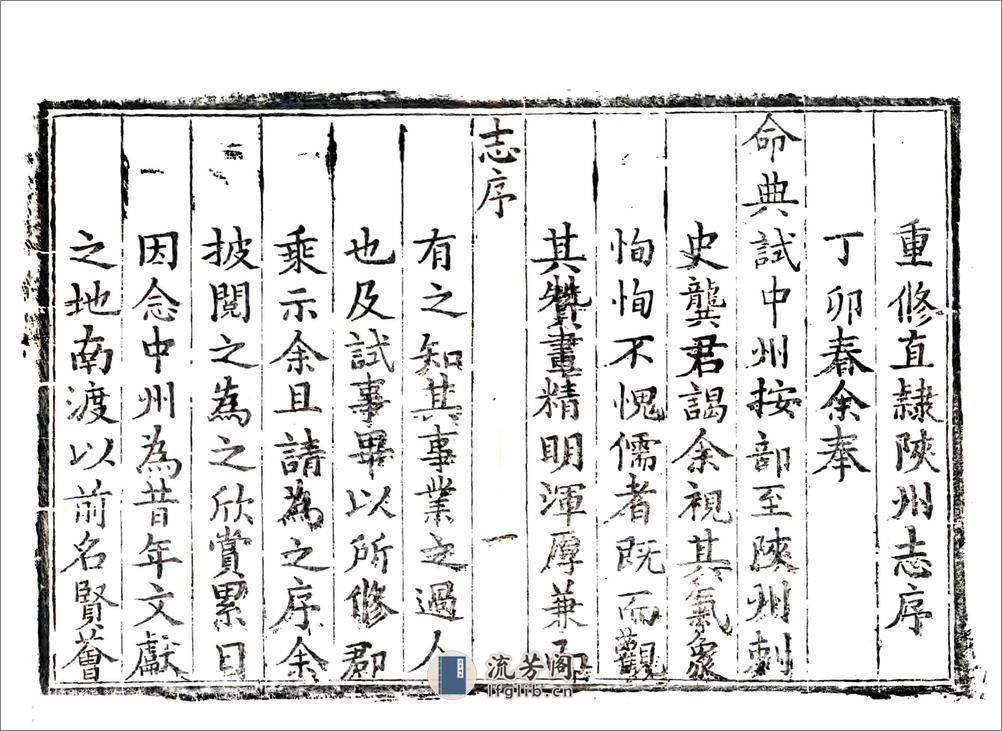 重修直隸陝州志序
丁卯春余奉
命典試中州按部至陝州刺
史龔君謁余視其氣象
恂恂不愧儒者既而觀
其贊畫精明渾厚兼
志序
一
有之知其事業之過人
也及試事畢以所修郡
乘示余且請為之序余
披閱之為之欣賞累日
因念中州為昔年文獻
之地南渡以前名賢薈
流芳阁
lfglib.cn